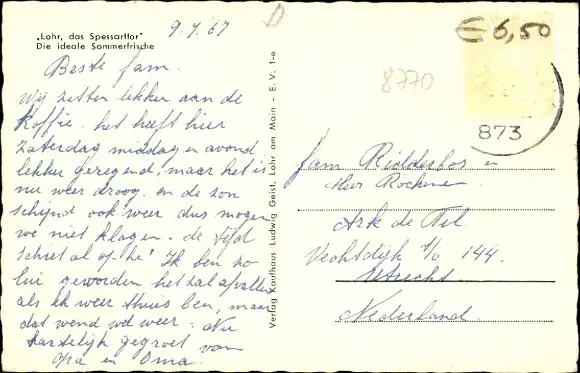 9.7.67
D
€6,50
„Lohr, das Spessarttor"
Die ideale Sommerfrische
8770
873
Beste fam.
Wij zitten lekker aan de
koffie. het heeft hier
zaterdag middag en avond
lekker geregend, maar het is
nu weer droog. en de zon
schijnd ook weer dus mogen
we niet klagen. de tijd
schiet al op he! Ik ben zo
lui geworden het zal afvallen
als ik weer thuis ben, maar
dat wend wel weer. Nu
hartelijk gegroet van
opa en Oma.
Verlag Kaufhaus Ludwig Geist, Lohr am Main - E. V. 1-e
fam Ridderbos en
Ark de Tel.
Vechtdijk t/o 144.
Utrecht
Nederland.